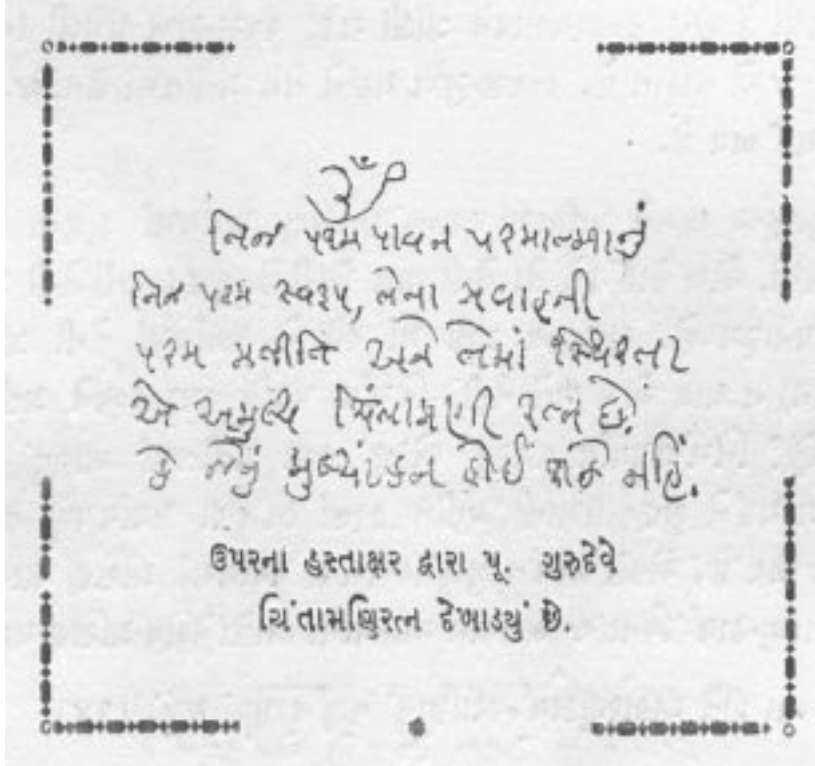 ૐ
નિજ પરમ પાવન પરમાત્માનું
નિજ પરમ સ્વરૂપ, તેના પ્રવાહની
પરમ પ્રતીતિ અને તેમાં સ્થિરતા
એ અમુલ્ય ચિંતામણી રત્ન છે.
કે જેનું મુલ્યાંકન હોઈ શકે નહિં.
ઉપરના હસ્તાક્ષર દ્વારા પૂ. ગુરુદેવે
ચિંતામણિરત્ન દેખાડયું છે.